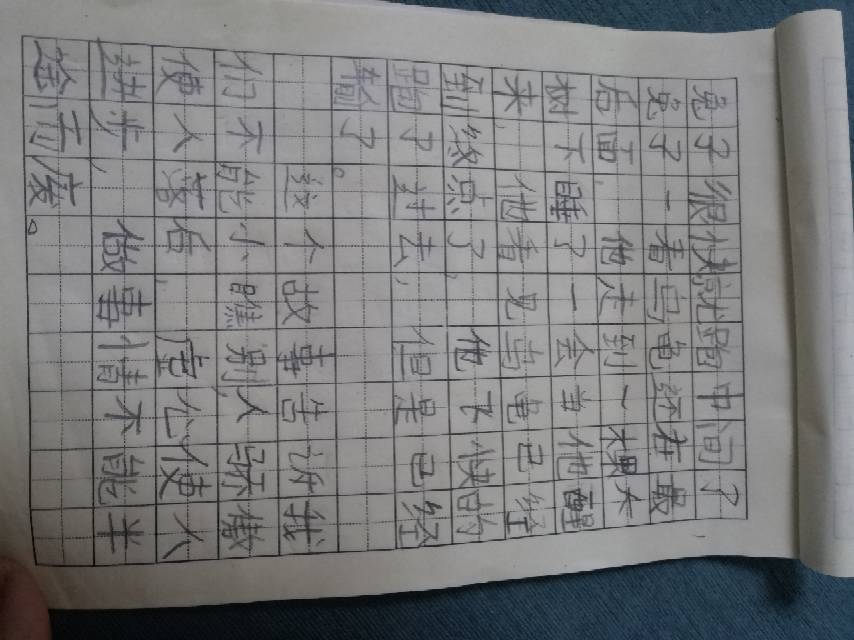 兔子很快就跑中间了
兔子一看乌龟还在最
后面,他走到一棵大
树下睡了一会 他醒
来,他看见乌龟已经
到终点了,他飞快的
跑了过去,但是已经
输了。
这个故事告诉我
们不能小瞧别人,骄傲
使人落后,虚心使人
进步,做事情不能半
途而废。